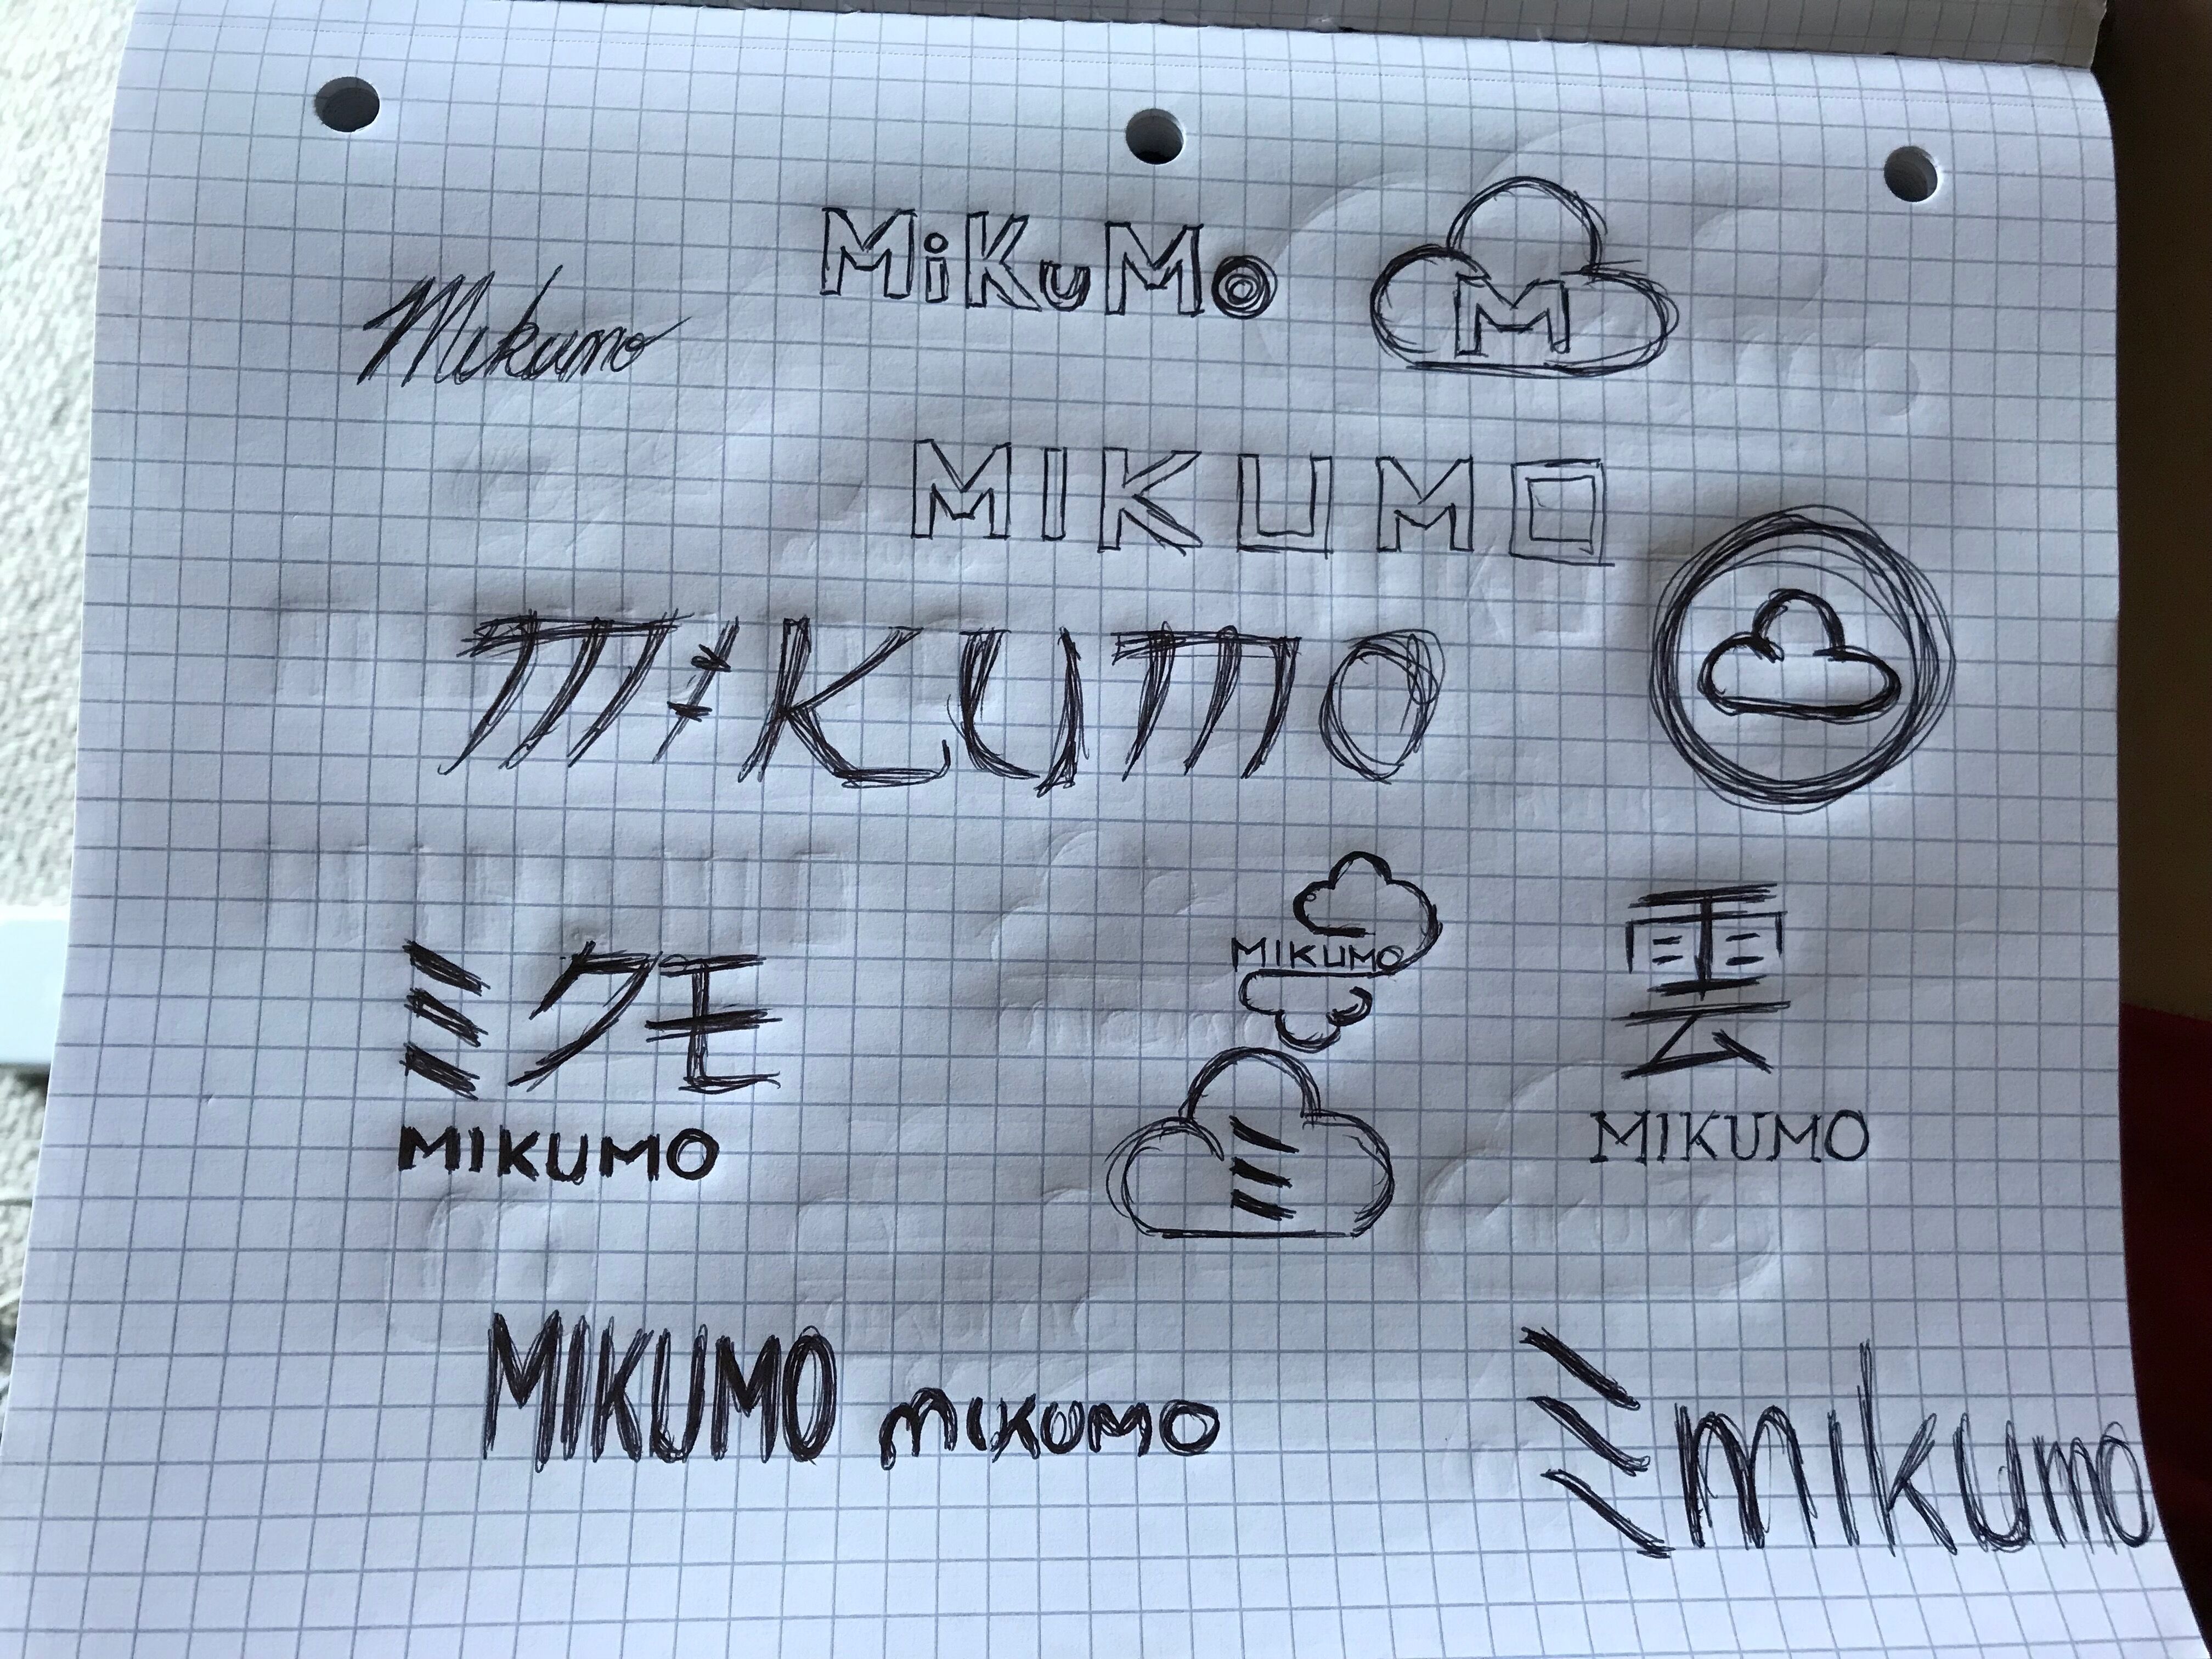 MiKuMo
M
Mikumo
MIKUMO
MiKUMO
MIKUMO
雲
MIKUMO
ミクモ
MIKUMO
ミ
MIKUMO
mikumo
ミmikumo